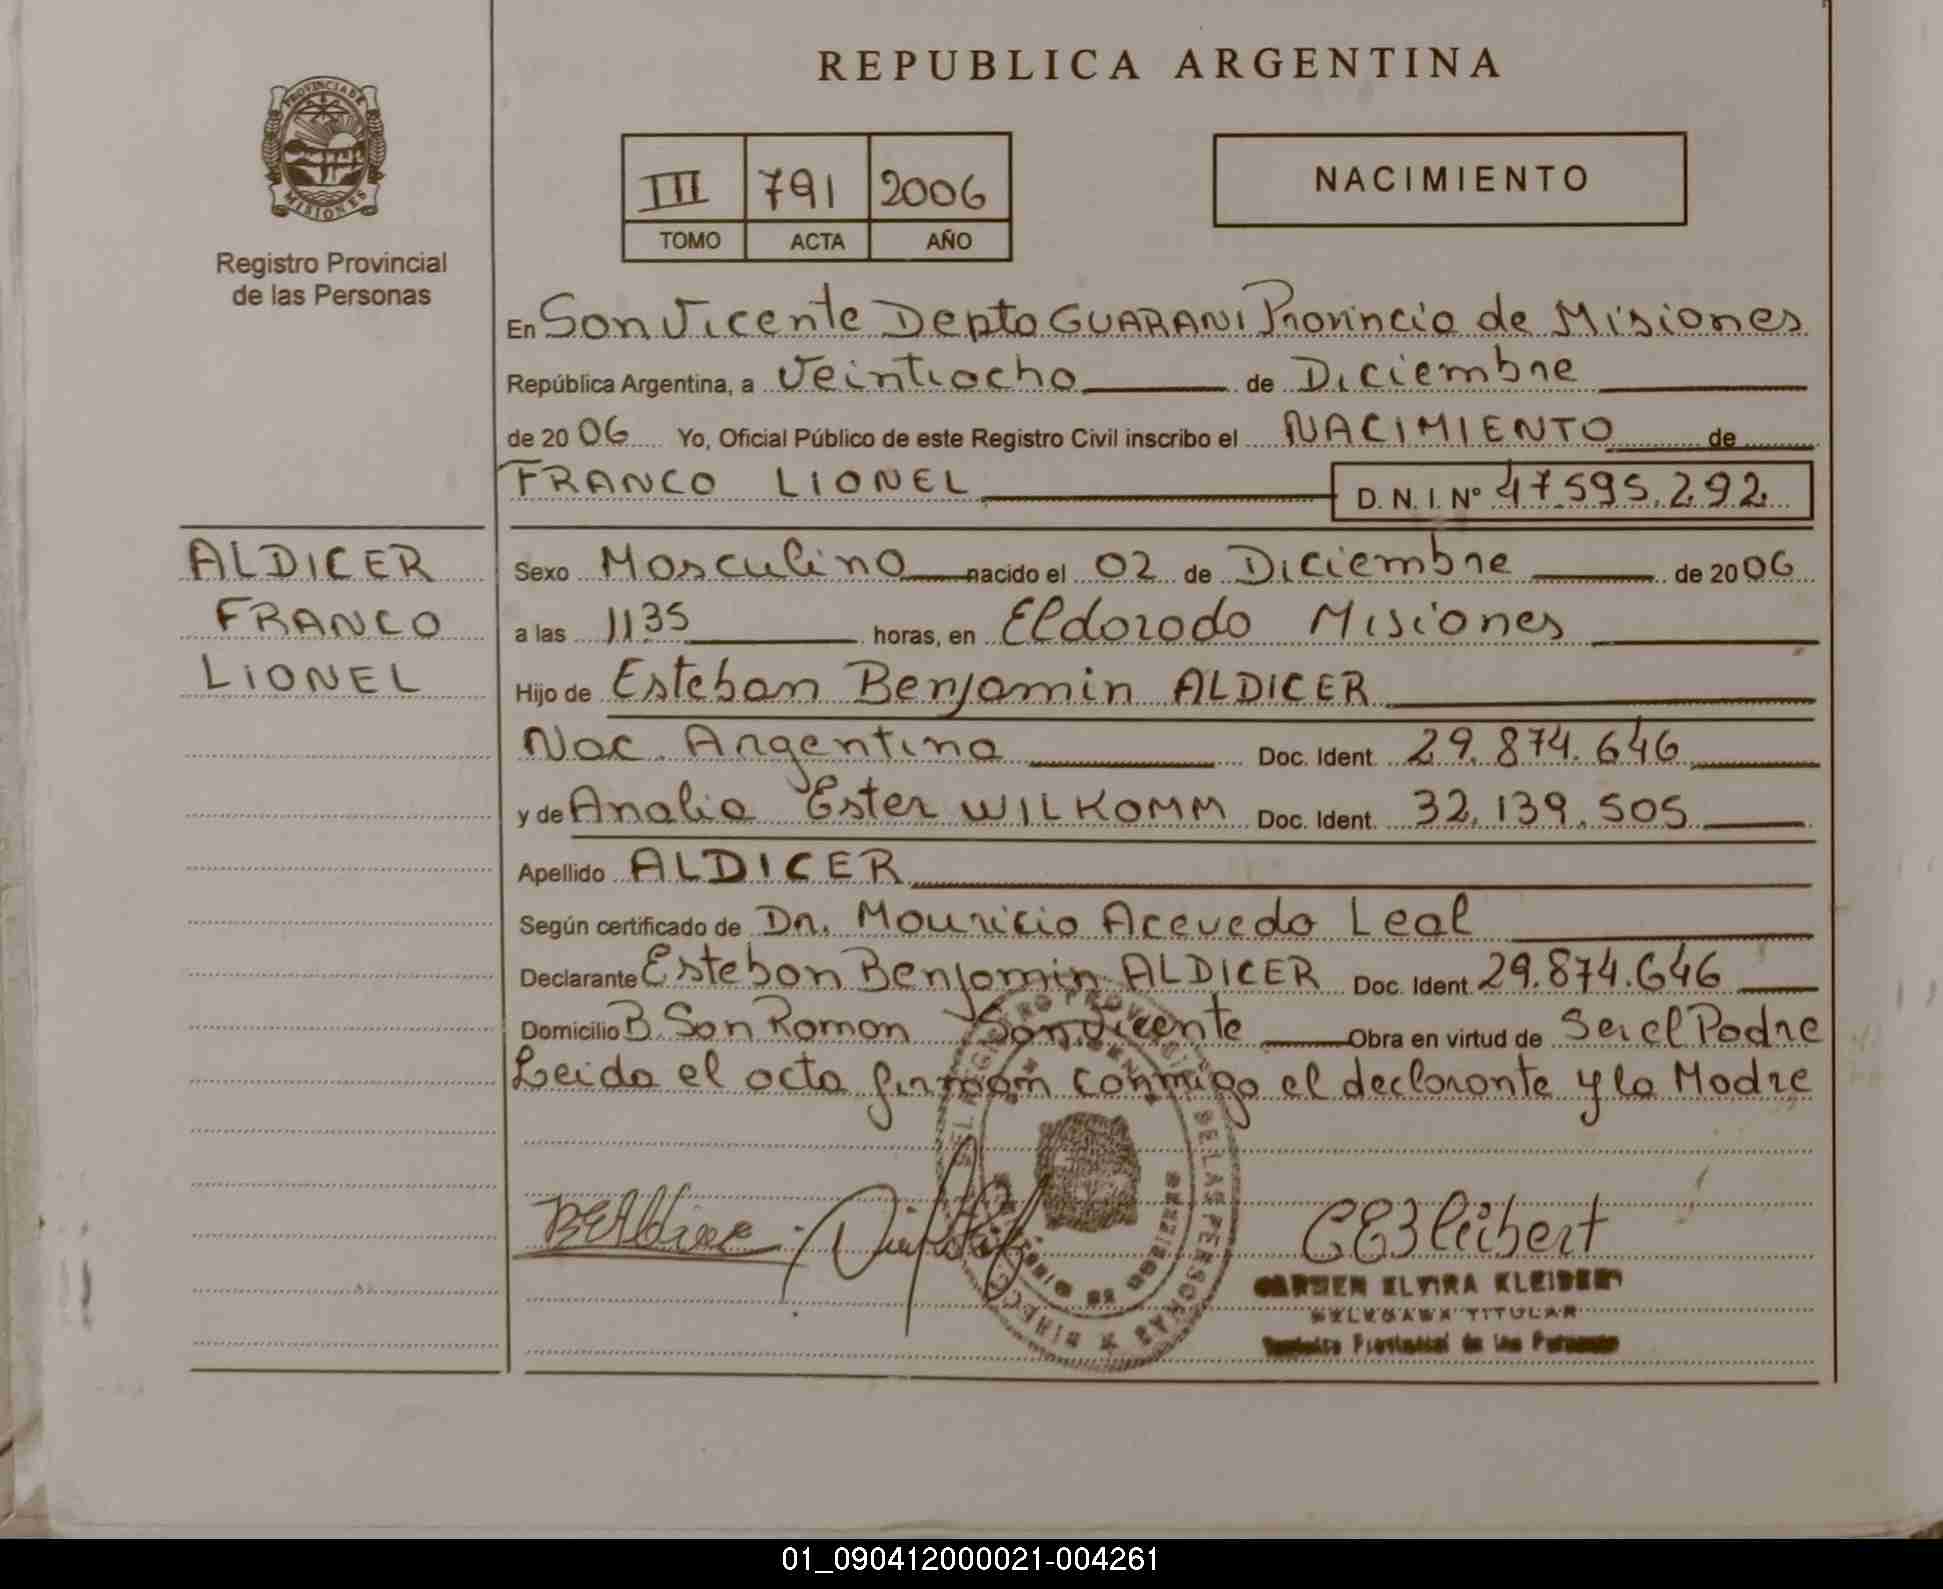 REPUBLICA ARGENTINA
PROVINCIA DE
MISIONES
Registro Provincial
de las Personas
III 791 2006
TOMO ACTA AÑO
NACIMIENTO
En San Vicente Depto GUARANI Provincia de Misiones
República Argentina, a Veintiocho de Diciembre
de 2006 Yo, Oficial Público de este Registro Civil inscribo el NACIMIENTO de
FRANCO LIONEL D. N. I. Nº 47.595.292
ALDICER
FRANCO
LIONEL
Sexo Masculino nacido el 02 de Diciembre de 2006
a las 1135 horas, en Eldorado Misiones
Hijo de Esteban Benjamin ALDICER
Nac. Argentina Doc. Ident. 29.874.646
y de Analia Ester WILKOMM Doc. Ident. 32.139.505
Apellido ALDICER
Según certificado de Dr. Mauricio Acevedo Leal
Declarante Esteban Benjamin ALDICER Doc. Ident. 29.874.646
Domicilio B. San Ramon San Vicente Obra en virtud de Ser el Padre
Leida el acta firman conmigo el declarante y la Madre
CARMEN ELVIRA KLEIBERT
DELEGADA TITULAR
Registro Provincial de las Personas
01_090412000021-004261